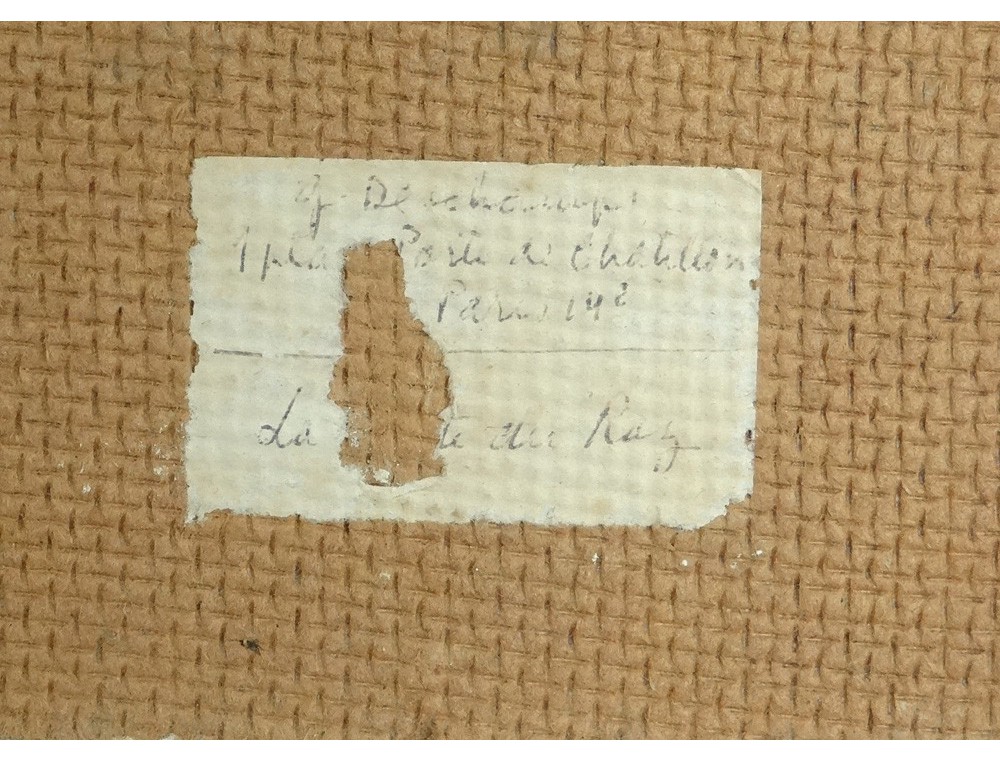 G. Deschamps
1 pla Porte de Chatillon
Paris 14e
La te du Raz